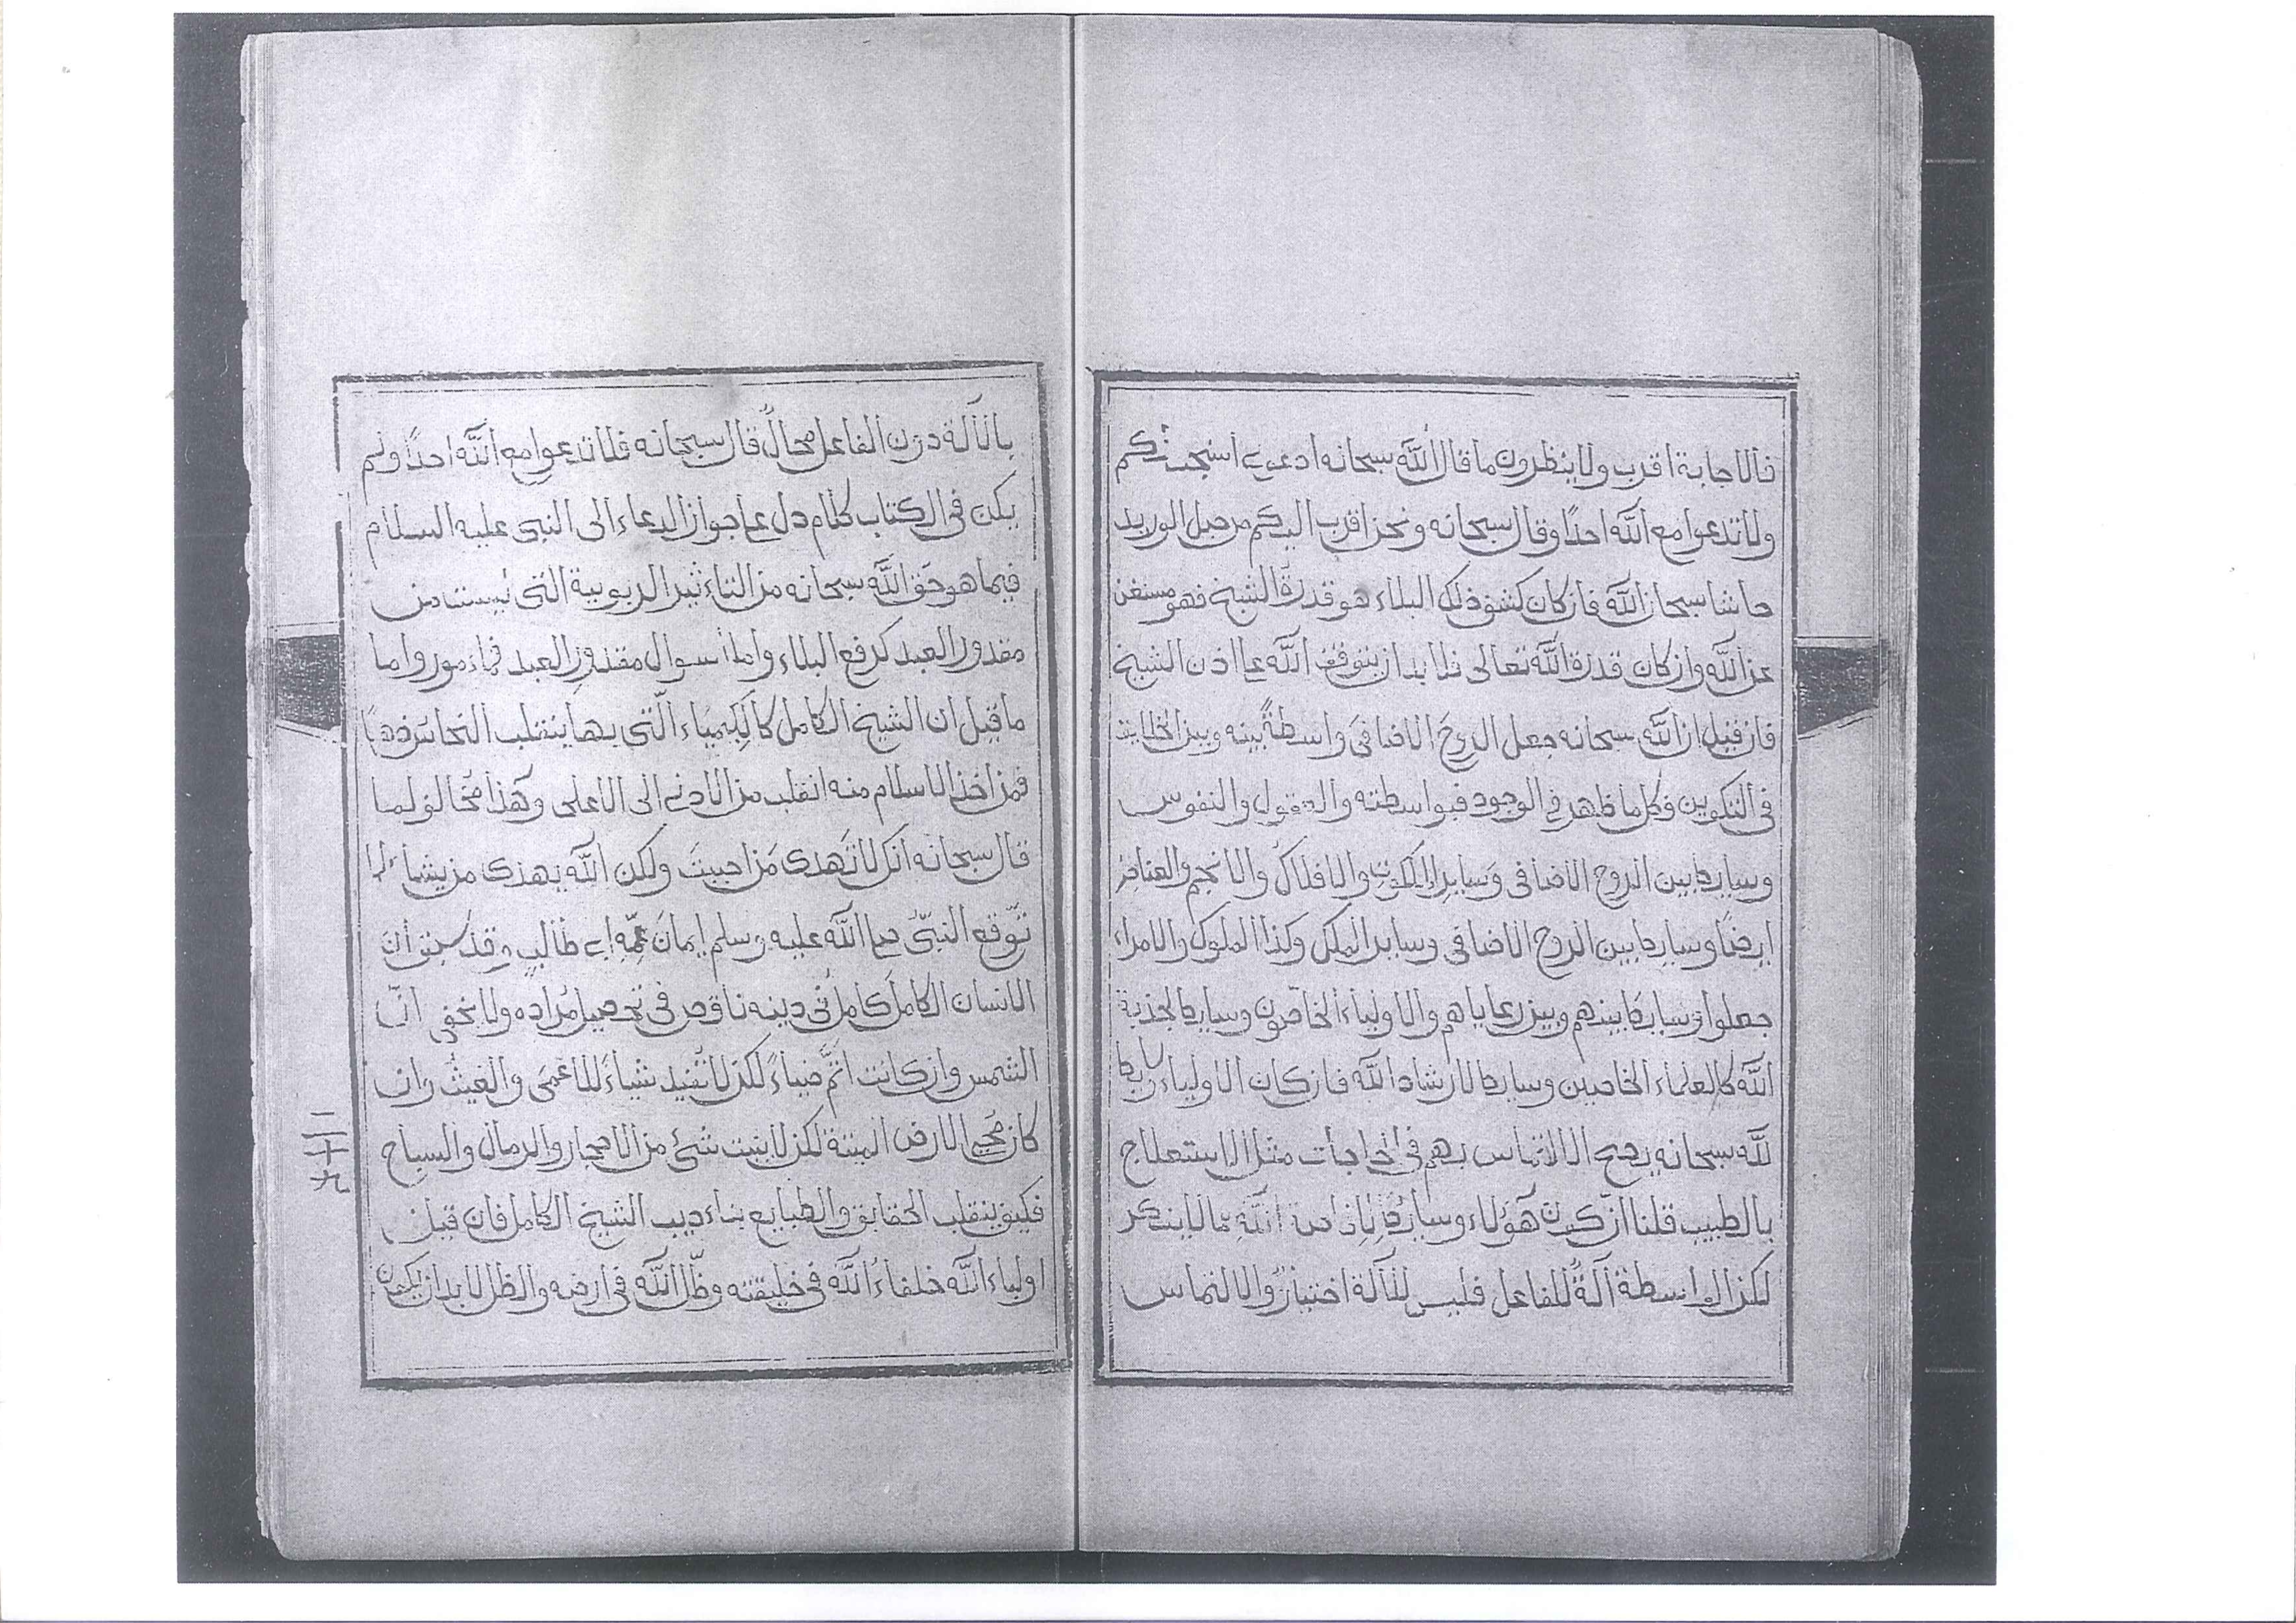 فالاجابة اقرب ولاينظرون ما قال الله سبحانه ادعونى استجب لكم
ولاتدعوا مع الله احدًا وقال سبحانه ونحن اقرب اليكم من حبل الوريد
حاشا سبحان الله فان كان كشف ذلك البلاء هو قدرة الشيخ فهو مستغن
عن الله وان كان قدرة الله تعالى فلا بد ان يتوقف الله على اذن الشيخ
فان قيل ان الله سبحانه جعل الروح الاضافى واسطةً بينه وبين الخلايق
فى التكوين فكل ما ظهر فى الوجود فبواسطته والعقول والنفوس
وسايط بين الروح الاضافى وساير الملكوت والافلاك والانجم والعناصر
ايضًا وسايط بين الروح الاضافى وساير الملك وكذا الملوك والامراء
جعلوا وسايط بينهم وبين رعاياهم والاولياء الخاصون وسايط لجذبة
الله كالعلماء الخاصين وسايط لارشاد الله فان كان الاولياء
لله سبحانه يصح الالتماس بهم فى الحاجات مثل الاستعلاج
بالطبيب قلنا ان كون هؤلاء وسايط الله مما لاينكر
لكن الواسطة آلةٌ للفاعل فليس للآلة اختيارٌ والالتماس
بالآلة دون الفاعل محالٌ قال سبحانه فلاتدعوا مع الله احدًا ولم
يكن فى الكتاب كلام دل على جواز الدعاء الى النبى عليه السلام
فيما هو حق الله سبحانه من التاءثير الربوبية التى ليست من
مقدور العبد كرفع البلاء واما سوال مقدور العبد فماءمور واما
ما قيل ان الشيخ الكامل كالكيمياء الّتى بها ينقلب النحاس ذهبًا
فمن اخذ الاسلام منه انقلب من الادنى الى الاعلى وهذا مخالف لما
قال سبحانه انك لاتهدى من احببت ولكن الله يهدى من يشاء لما
توقع النبىّ صلى الله عليه وسلم ايمان عمّه ابى طالب وقد سبق انّ
الانسان الكامل كامل فى دينه ناقص فى تحصيل مراده ولا يخفى انّ
الشمس وان كانت اتمّ ضياءً لكن لاتفيد شياءً للاعمى والغيث وان
كان محيى الارض الميتة لكن لاينبت شىء من الاحجار والرمال والسباخ
فكيف ينقلب الحقايق والطبايع بتاءديب الشيخ الكامل فان قيل
اولياء الله خلفاء الله فى خليقته وظلّ الله فى ارضه والظل لابد ان يكون